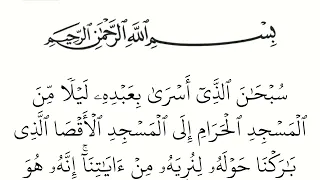 بِسْمِ ٱللَّهِ ٱلرَّحْمَٰنِ ٱلرَّحِيمِ
سُبْحَٰنَ ٱلَّذِىٓ أَسْرَىٰ بِعَبْدِهِۦ لَيْلًا مِّنَ
ٱلْمَسْجِدِ ٱلْحَرَامِ إِلَى ٱلْمَسْجِدِ ٱلْأَقْصَا ٱلَّذِى
بَٰرَكْنَا حَوْلَهُۥ لِنُرِيَهُۥ مِنْ ءَايَٰتِنَآ ۚ إِنَّهُۥ هُوَ